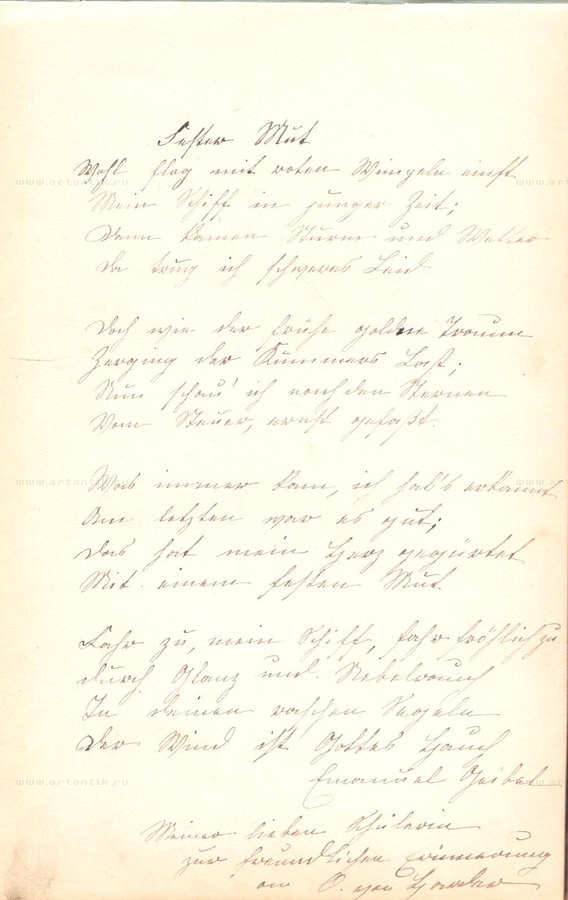 Fester Mut
Wohl flog mit roten Wimpeln einst
Mein Schiff in junger Zeit;
Dann kamen Sturm und Wetter
Da trug ich schweres Leid
Doch wie der frühe goldne Traum
Zerging der Kummers Last;
Nun schau' ich nach den Sternen
Vom Steuer, ernst gefaßt.
Was immer kam, ich hab's erkannt
Am letzten war es gut;
Das hat mein Herz gegürtet
Mit einem festen Mut
Fahr zu, mein Schiff, fahr fröhlich zu
durch Glanz und Nebelrauch
In deinen raschen Segeln
Der Wind ist Gottes Hauch
Emanuel Geibel
Meiner lieben Schülerin
zur freundlichen Erinnerung
an O. von
www.artantik.ru